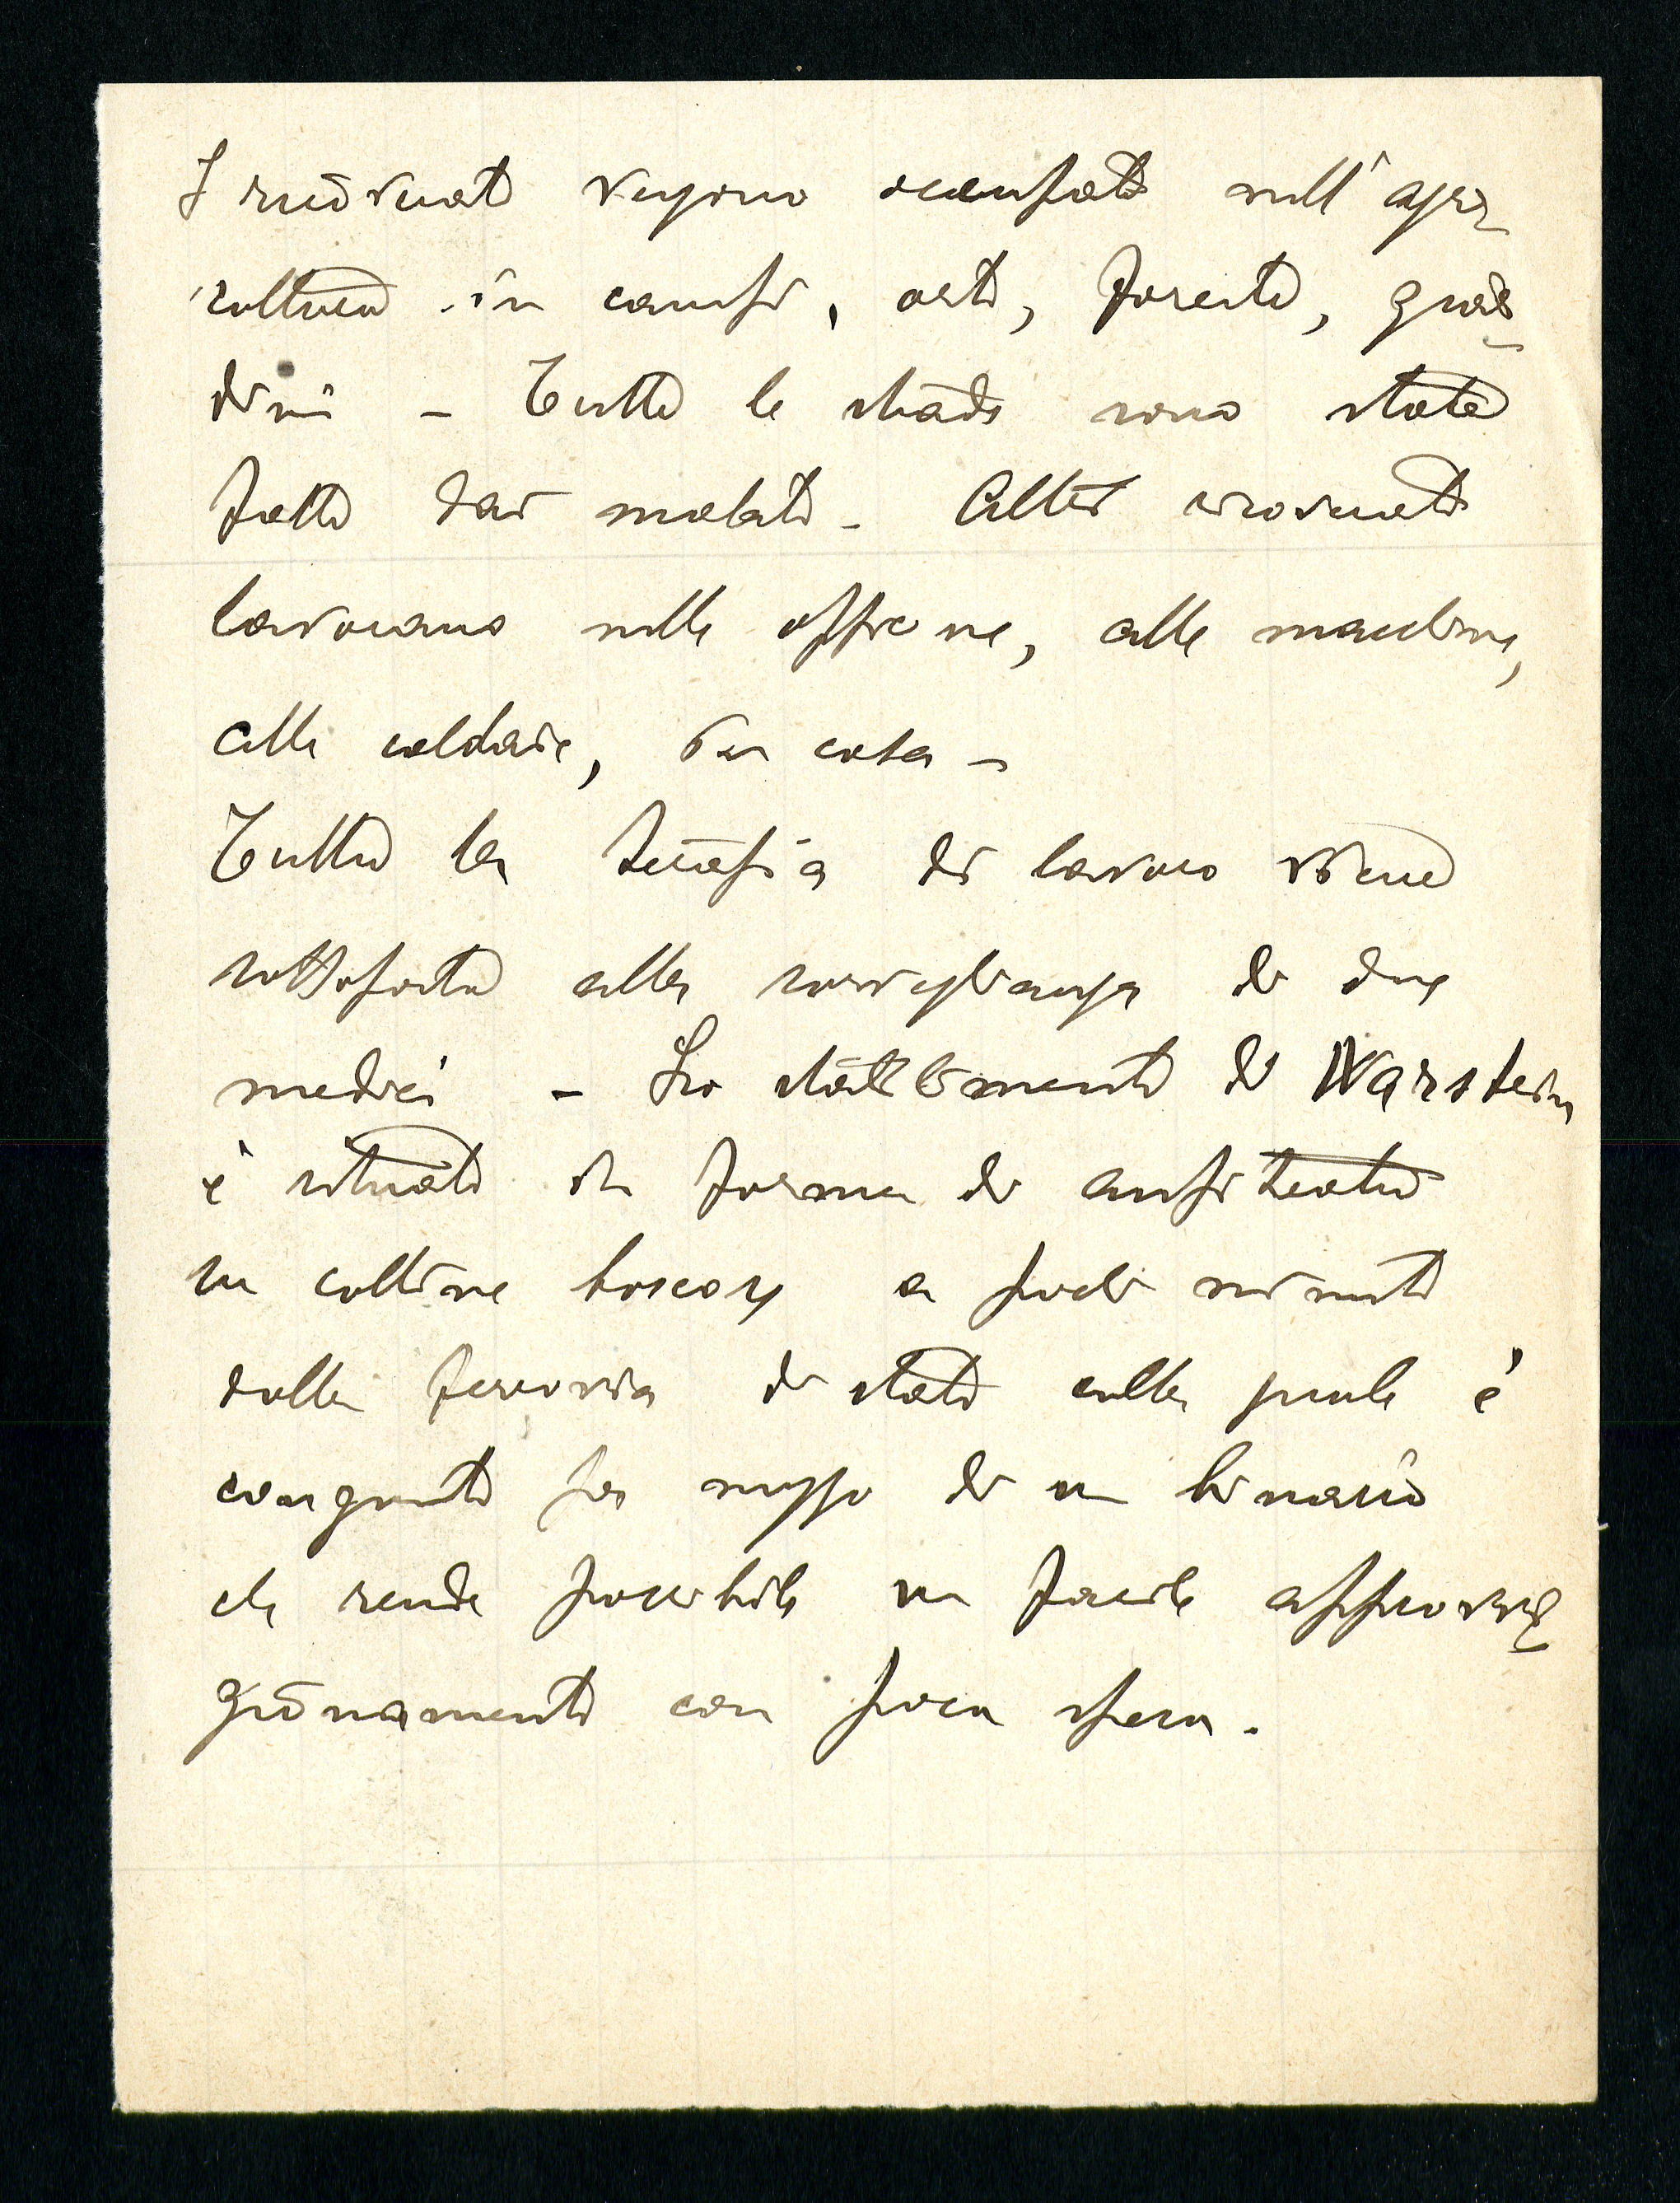 I ricoverati vengono occupati nell'agri-
coltura in campi, orti, foreste, giar-
dini - Tutte le strade sono state
fatte dai malati - Altri ricoverati
lavorano nelle officine, alle macchine,
alle caldaie, in casa -
Tutta la terapia di lavoro viene
sottoposta alla sorveglianza di due
medici - Lo stabilimento di Warstein
è situato in forma di anfiteatro
su colline boscose a pochi minuti
dalla ferrovia di stato colla quale è
congiunto per mezzo di un binario
che rende possibile un facile approvvi-
gionamento con poca spesa.